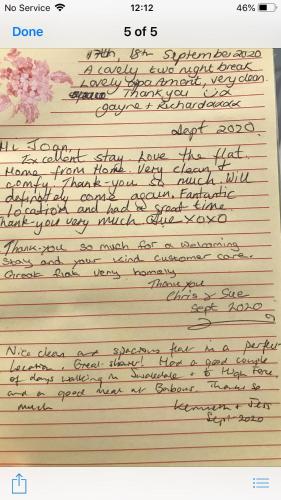 No Service
12:12
46%
Done
5 of 5
17th, 18th September 2020
A Lovely two night break
Lovely Apartment, very clean.
Thank you
Gayne + Richard xxxx
Sept 2020.
Hi Joan,
Excellent stay. Love the flat.
Home from Home. Very clean &
comfy. Thank-you so much. Will
definately come again. Fantastic
location and had a great time.
Thank-you very much. Sue XOXO
Thank-you so much for a welcoming
stay and your kind customer care.
Great flat very homely
Thank you
Chris & Sue
Sept 2020
Nice clean and spacious flat in a perfect
location. Great shower! Had a good couple
of days walking in Swaledale + to High Force
and a good meal at Babouls. Thanks so
much
Kenneth + Jess
Sept 2020